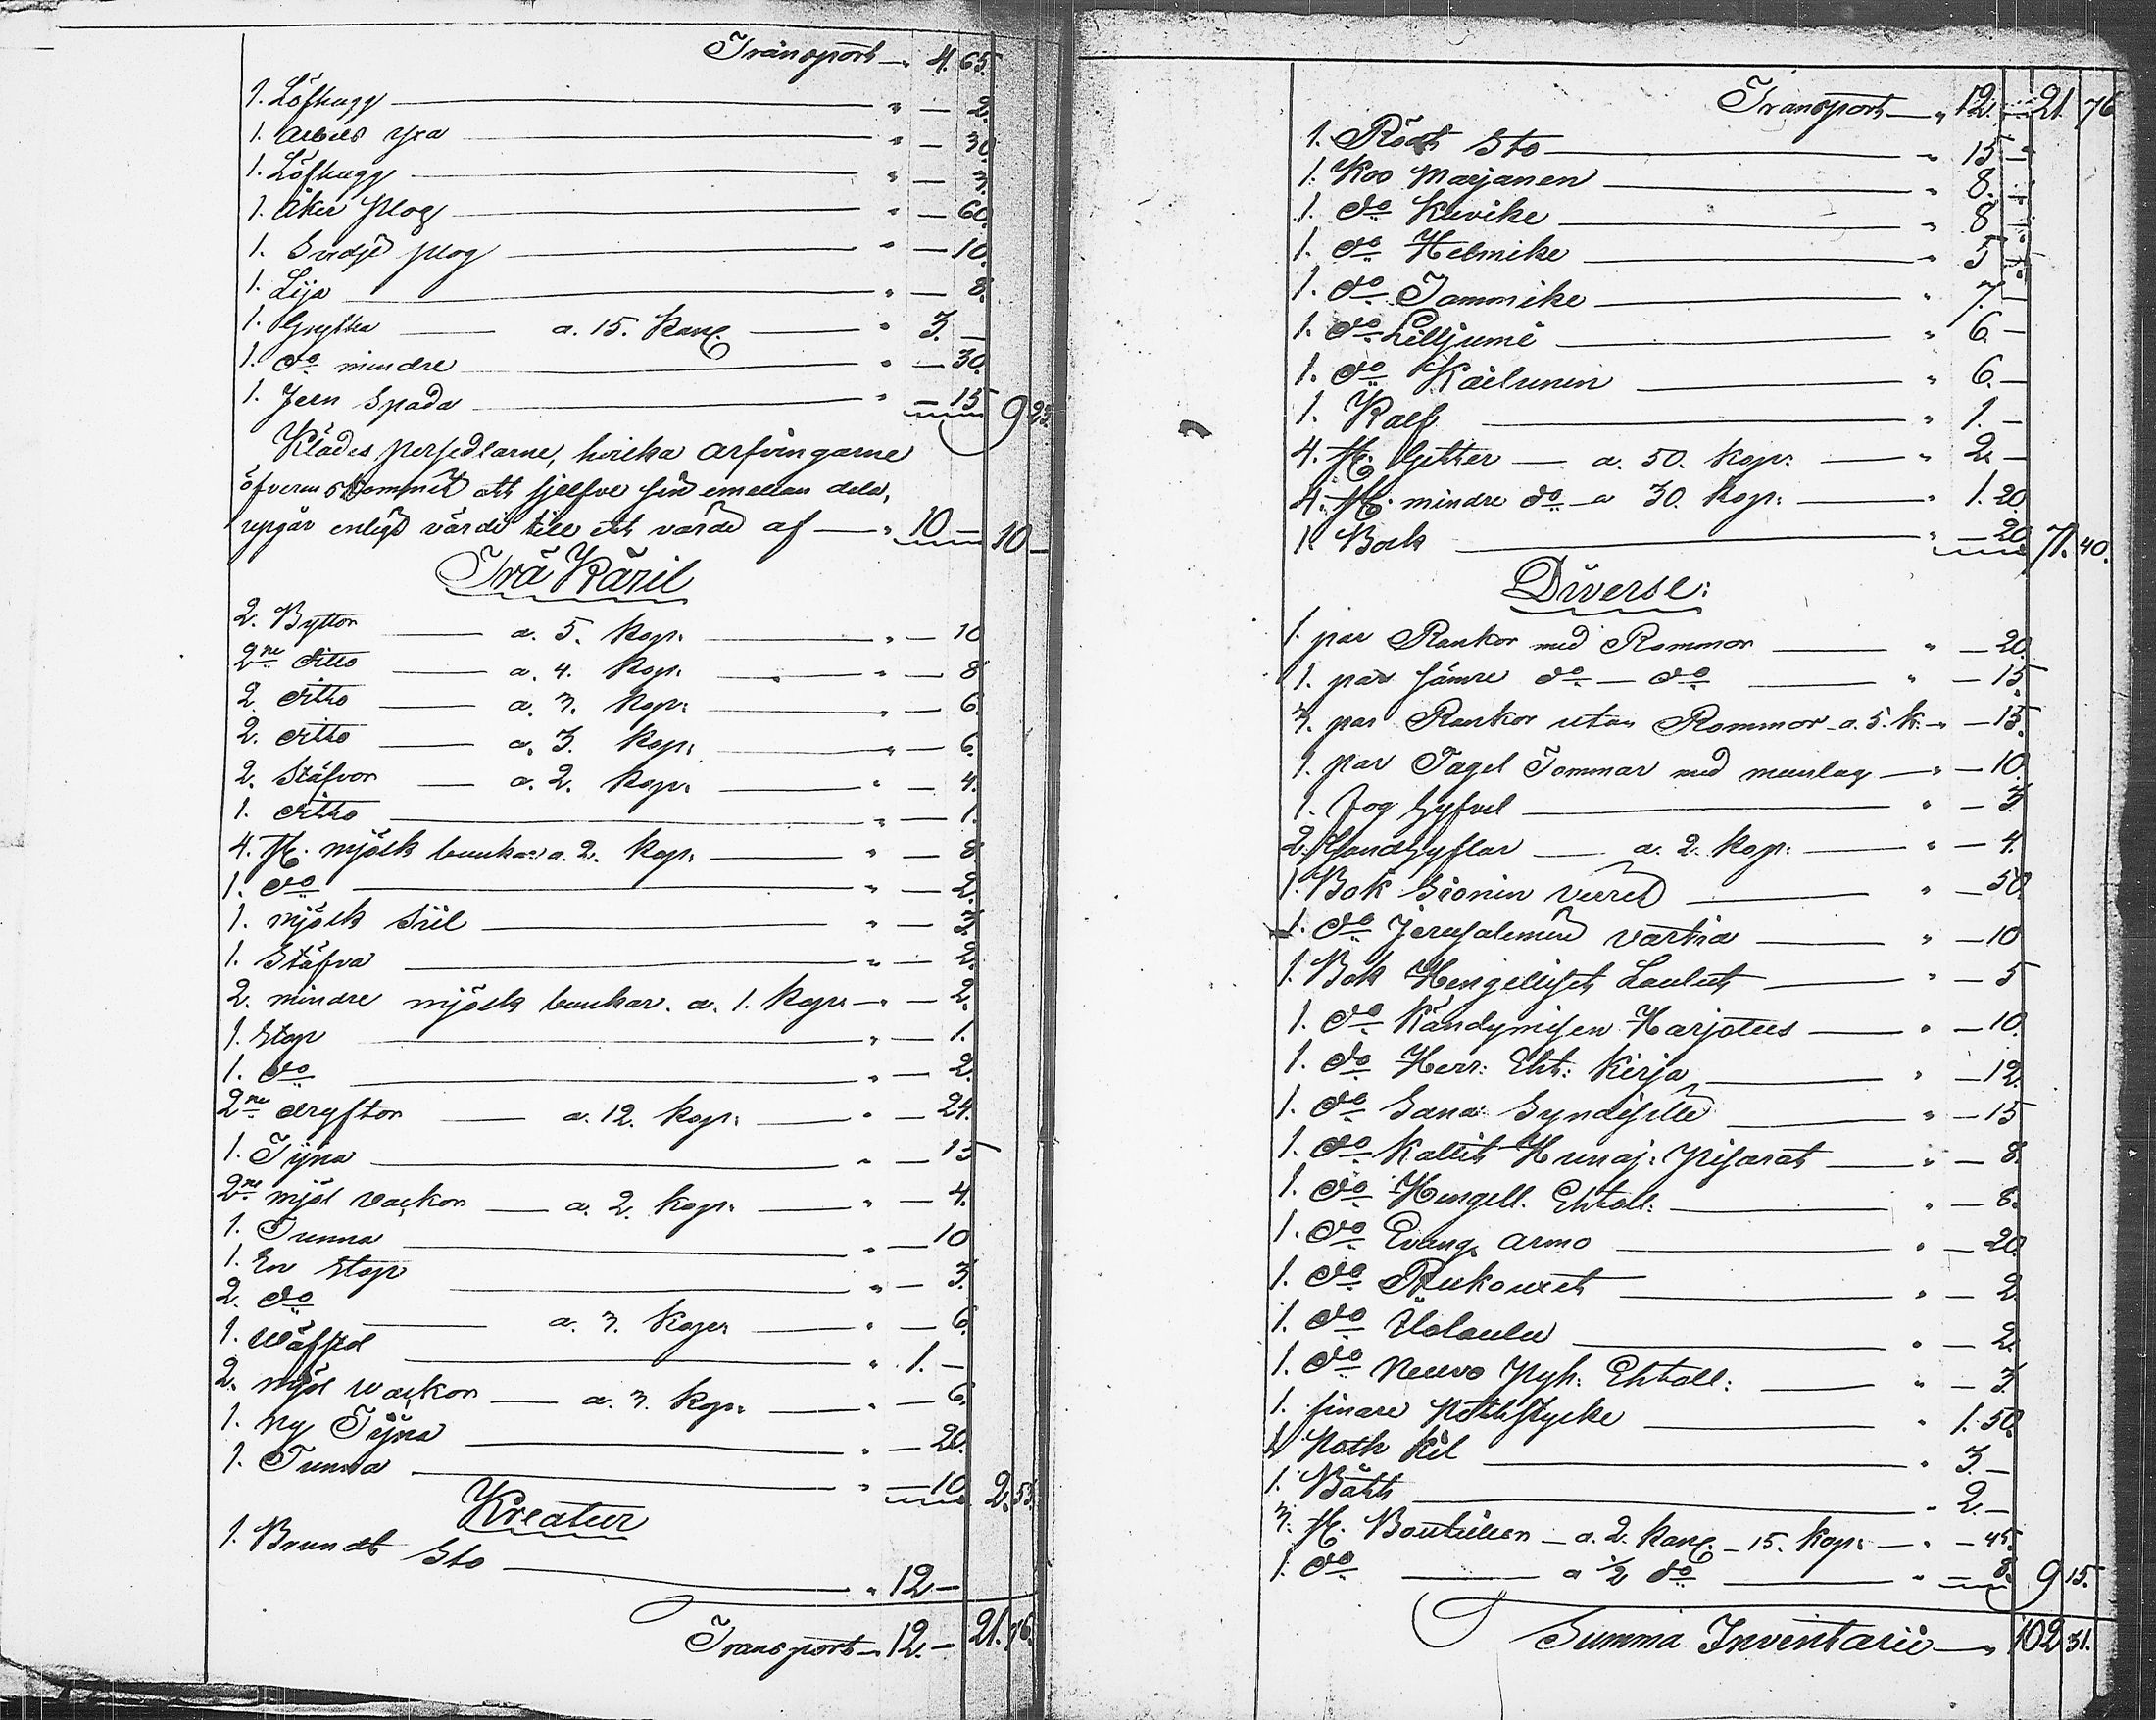 Transport — " 4. 65.
1. Löfhugg — " — 2.
1. Arbets yxa — " — 30.
1. Löfhugg — " — 3.
1. Åker plog — " — 60.
1. Svedje plog — " — 10.
1. Lija — " — 8.
1. Grytta — a. 15. Kan. — " 3. —
1. do mindre — " — 30.
1. Jern Spada — " — 15 9 23.
Klädes persedlarne, hvilka arfvingarne
öfverenskommit att sjelfve sin emellan dela,
upgår enligt värde till ett värde af — " 10 — 10 —
Trä Käril
2. Byttor — a. 5. Kop. — " — 10
2ne ditto — a. 4. Kop. — " — 8
2. ditto — a. 3. Kop. — " — 6.
2. ditto — a. 3. Kop. — " — 6.
2. Stäfvor — a. 2. Kop. — " — 4.
1. ditto — " — 1.
4. st. mjölk bunkar a. 2. Kop. — " — 8
1. do — " — 2.
1. mjölk Siil — " — 3.
1. Stäfva — " — 2.
2. mindre mjölk bunkar. a. 1. Kop. — " — 2.
1. Stop — " — 1.
1. do — " — 2.
2ne dryftor — a. 12. Kop. — " — 24.
1. Tyna — " — 15
2ne mjöl vackor — a. 2. Kop. — " — 4.
1. Tunna — " — 10
1. En Stop — " — 3.
2. do — a. 3. Kop. — " — 6.
1. Wäfstol — " 1. —
2. mjöl vackor — a. 3. Kop. — " — 6.
1. ny Tyna — " — 20.
1. Tunna — " — 10 2. 53.
Kreatur
1. Brundt Sto — " 12 —
Transport — " 12. — 21. 76.
Transport — " 12. — 21. 76
1. Rödt Sto — " 15 —
1. Koo Marjanen — " 8. —
1. do Kuvike — " 8 —
1. do Helmike — " 5 —
1. do Tommike — " 7. —
1. do Lilljumé — " 6. —
1. do Kailunin — " 6. —
1. Kalf — " 1. —
4. st. Getter — a. 50. Kop. — " 2. —
4. st. mindre do — a 30. Kop. — " 1. 20
1. Bock — " — 20 71. 40.
Diverse:
1. par Rankor med Rommor — " — 20.
1. par sämre do — do — " — 15
3. par Rankor utan Rommor a. 5. K. " — 15.
1. par Tagel Tommar med munlag — " — 10.
1. Jog Gyfvel — " — 3
2. Handgyflar — a. 2. Kop. — " — 4.
1. Bok Sionin Veret — " — 50.
1. do Jerusalemin Vartia — " — 10
1. Bok Hengeliset Laulut — " — 5
1. do Kändymisen Harjotus — " — 10.
1. do Herr: Eht: Kirja — " — 12.
1. do Sana Syndisille — " — 15
1. do Kallit Hunaj: pisarat — " — 8.
1. do Hengell. Ehtoll: — " — 8.
1. do Evang. armo — " — 20.
1. do Rukouxet — " — 2
1. do — " — 2.
1. do Neuvo Pyh: Ehtoll: — " — 3.
1. finare Nothstycke — " 1. 50.
1. Noth Kil — " 3. —
1. Båtk — " 2. —
3. st. Bouteiller — a. 2. Kan. — 15. Kop. — " — 45.
1. do — a ½ do — " — 8. 9 15.
Summa Inventarie — " 102 31.